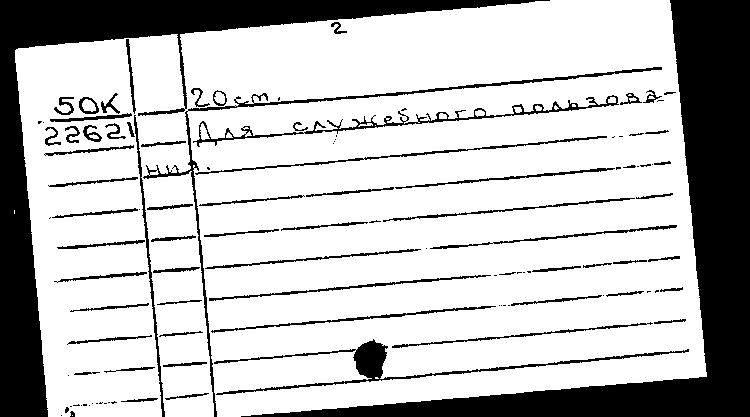 2
50К
22621
20 см.
Для служебного пользова-
ния.